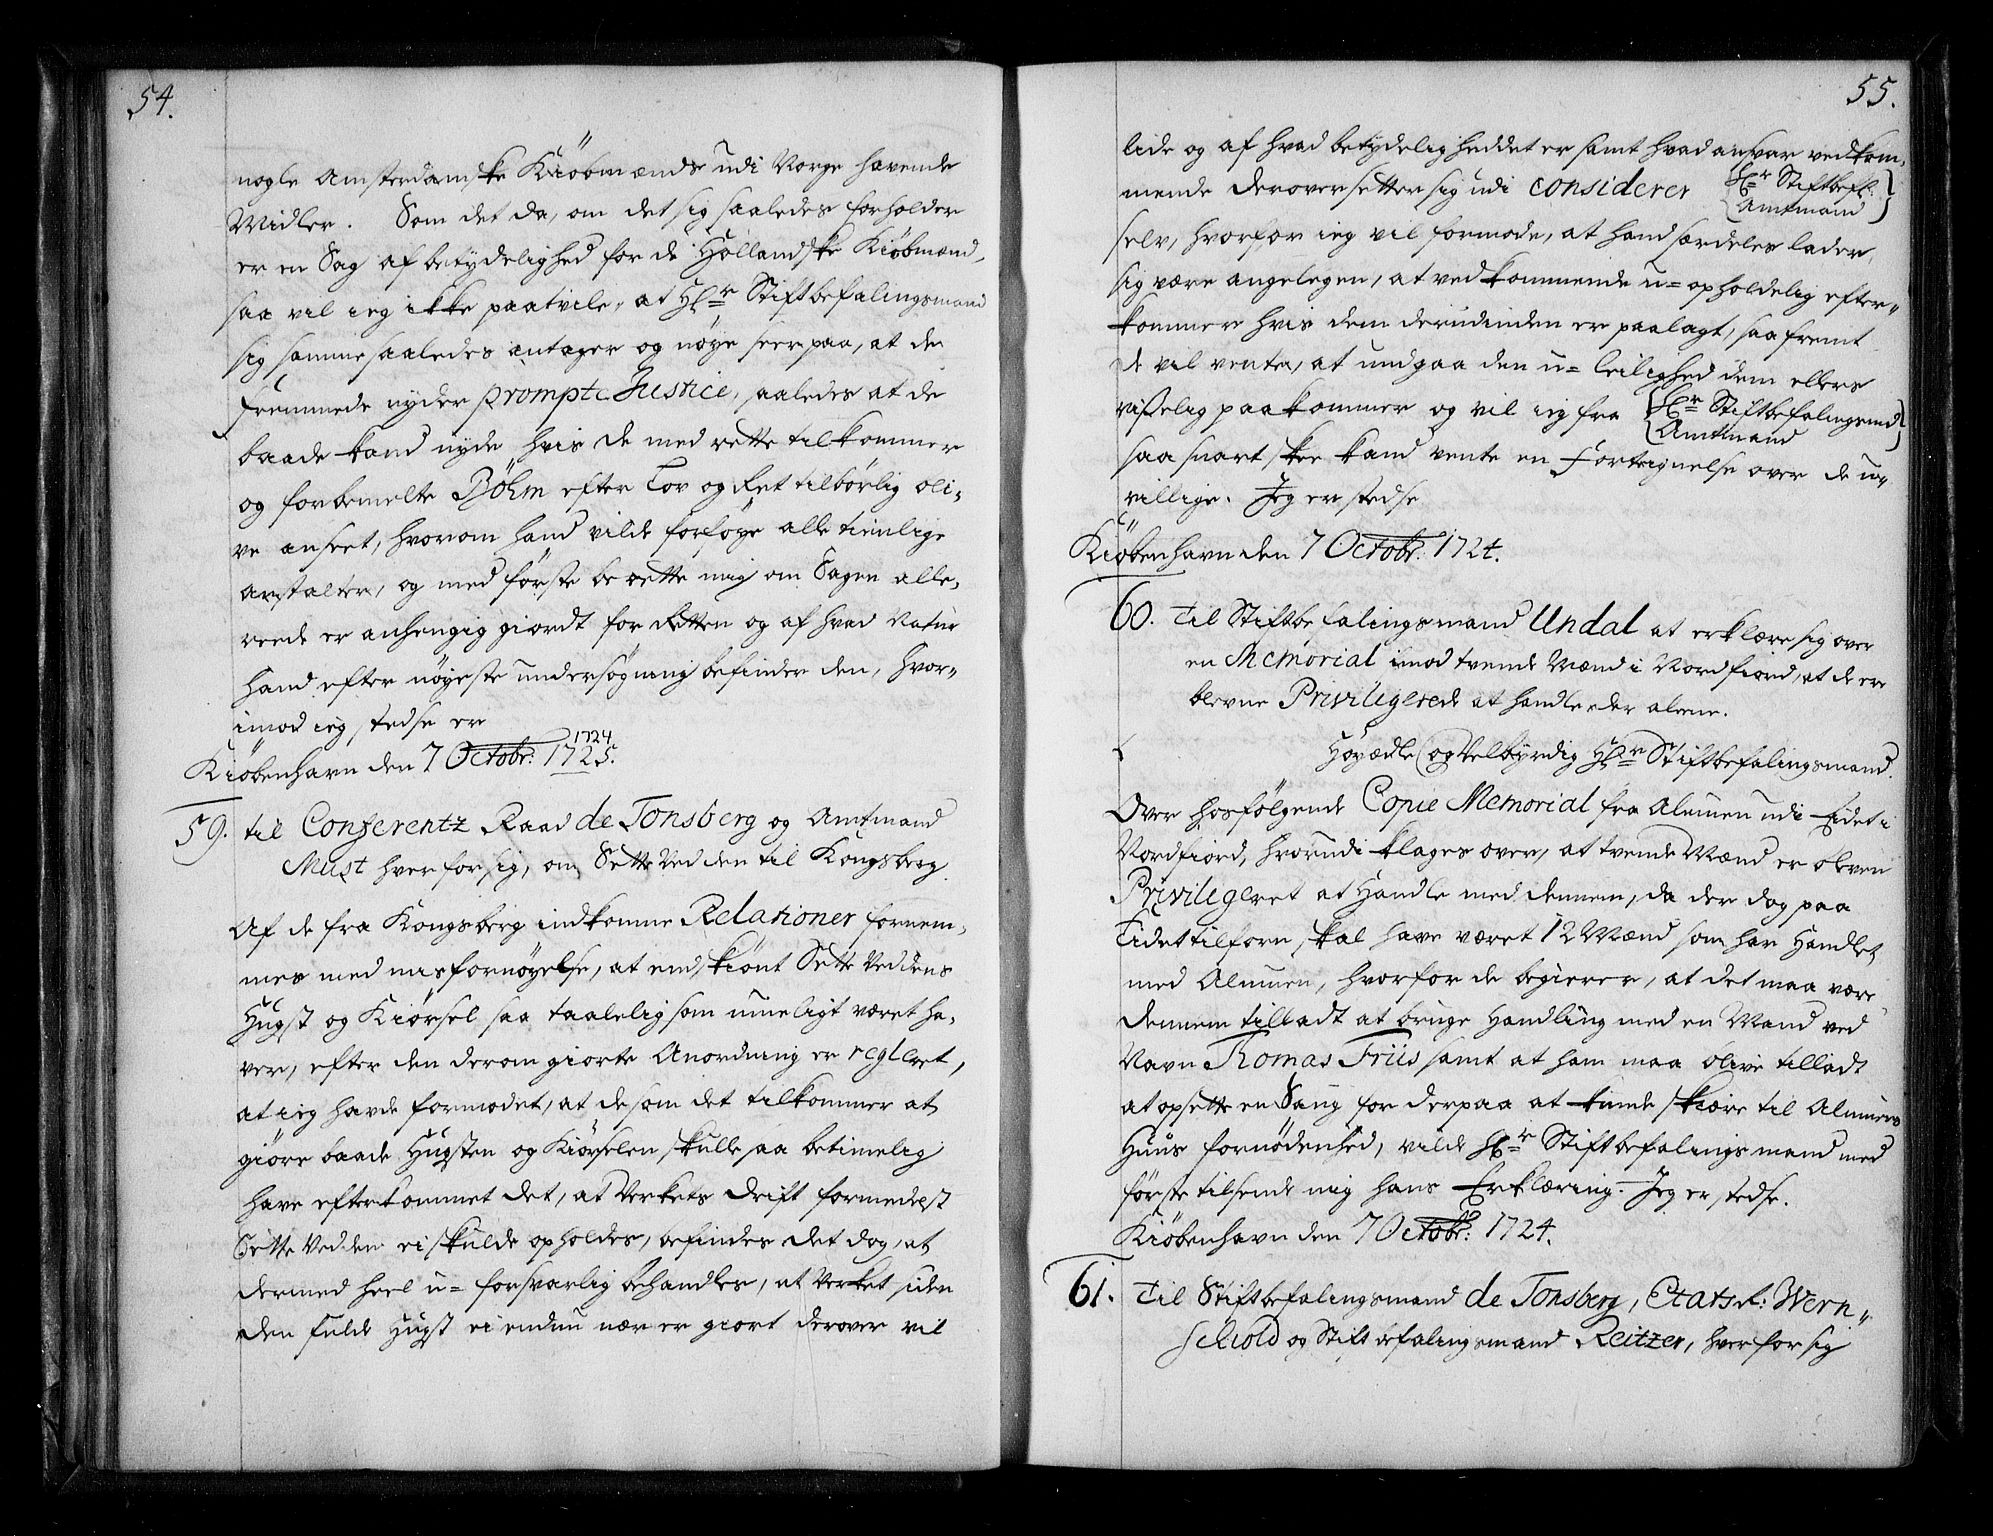 54.
nogle Amsterdamske Kiöbmænds udi Norge havende
Midler. Som det da, om det sig saaledes forholder
er en Sag af betydelighed for de Hollandske Kiöbmænd,
saa vil ieg ikke paatvile, at Hr Stiftbefalingsmand
sig samme saaledes antager og nöye seer paa, at de
fremmede nyder prompte Justice, saaledes at de
baade kand nyde hvis de med rette tilkommer
og forbemelte Böhm efter Lov og Ret tilbörlig bli-
ve anseet, hvorom hand vilde forföye alle tienlige
anstalter, og med förste berette mig om Sagen alle-
reede er anhengig giordt for Retten og af hvad Natur
hand efter nöyeste undersögning befinder den, hvor-
imod ieg stedse er
Kiöbenhavn den 7 Octobr: 1725. 1724
59. til Conferentz Raad de Tonsberg og Amtmand
Must hver for sig, om Sette Vedden til Kongsberg.
Af de fra Kongsberg indkomne Relationer fornem-
mes med misfornöyelse, at endskiönt Sette Veddens
Hugst og Kiörsel saa taalelig som umeligt været ha-
ver, efter den derom giorte Anordning er regleret,
at ieg havde formodet, at de som det tilkommer at
giöre baade Hugsten og Kiörselen skulle saa betimelig
have efterkommet det, at Verkets drift formedelst
Sette Vedden ei skulde opholdes, befindes det dog, at
dermed heel u- forsvarlig behandles, at Verket siden
den fulde Hugst ei endnu nær er giort derover vil
55.
lide og af hvad betydelighed det er samt hvad ansvar vedkom-
mende derover setter sig udi considerer Hr Stiftbefl: Amtmand
selv, hvorfor ieg vil formode, at hand særdeles lader
sig være angelegen, at vedkommende u- opholdelig efter-
kommer hvis dem derudinden er paalagt, saa fremt
de vil vente, at undgaa den u- leilighed dem ellers
visselig paakommer og vil ieg fra Hr Stiftbefalingsmd Amtmand
saa snart skee kand vente en Forteignelse over de u-
villige. Jeg er stedse
Kiöbenhavn den 7 Octobr: 1724.
60. Til Stiftbefalingsmand Undal at erklære sig over
en Memorial imod tvende Mænd i Nordfiord, at de ere
blevne Privilegerede at handle der alene.
Höyædle og Velbyrdig Hr Stiftbefalingsmand.
Over hosfölgende Copie Memorial fra Almuen udi Eidet i
Nordfiord, hvorudi klages over, at tvende Mænd er bleven
Privilegeret at Handle med dennem, da der dog paa
Eidet tilforn skal have været 12 Mænd som har Handlet
med Almuen, hvorfor de begierer, at det maa være
dennem tilladt at bruge Handling med en Mand ved
Navn Tomas Friis samt at ham maa blive tilladt
at opsette en Saug for derpaa at kunde skiære til Almuens
Huus fornödenhed, vilde Hr Stiftbefalingsmand med
förste tilsende mig hans Erklæring. Jeg er stedse.
Kiöbenhavn den 7 Octobr: 1724.
61. Til Stiftbefalingsmand de Tonsberg, Etats R: Wern-
schiold og Stiftbefalingsmand Reitzer, hver for sig